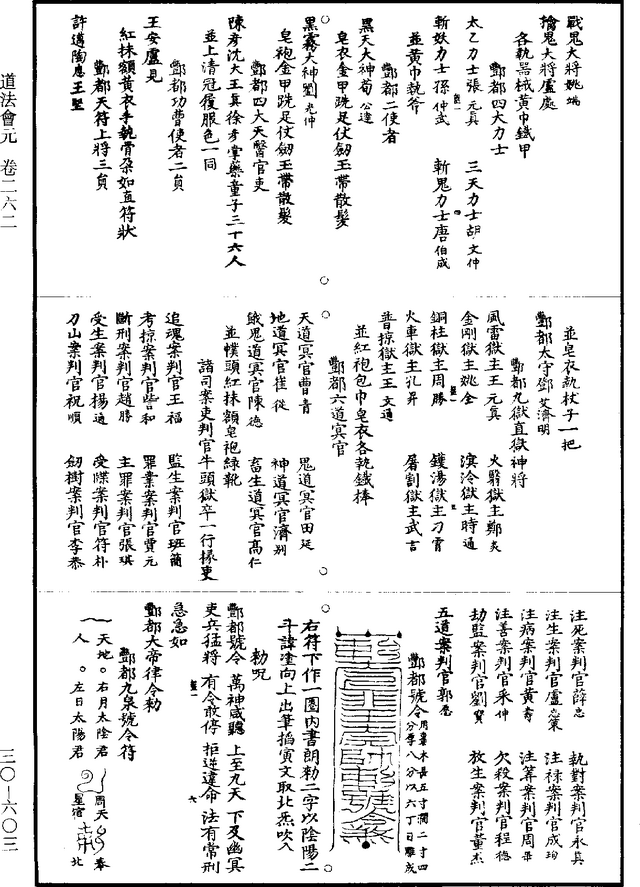 道法會元　卷二六二
三〇—六〇三
戰鬼大將姚端
擒鬼大將盧處
各執器械黃巾鐵甲
酆都四大力士
太乙力士張元真　三天力士胡文仲
斬妖力士孫仲武　斬鬼力士唐伯成
並黃巾執斧
酆都二使者
黑天大神苟公達
皂衣金甲跣足仗劒玉帶散髮
黑霧大神劉光仲
皂袍金甲跣足仗劒玉帶散髮
酆都四大天醫官吏
陳彥沈大王真徐彥掌藥童子三十六人
並上清冠履服色一同
酆都功曹使者二員
王安盧見
紅抹額黃衣手執骨朵如直符狀
酆都天符上將三員
許遷陶應王堅
並皂衣執杖子一把
酆都太守鄧艾濟明
酆都九獄直獄神將
風雷獄主王元真　火翳獄主鄭炎
金剛獄主姚全　溟泠獄主時通
銅柱獄主周勝　鑊湯獄主刁霄
火車獄主孔昇　屠割獄主武吉
普掠獄主王文通
並紅袍包巾皂衣各執鐵棒
酆都六道冥官
天道冥官曹青　鬼道冥官田延
地道冥官崔從　神道冥官濟別
餓鬼道冥官陳德　畜生道冥官高仁
並幞頭紅抹額皂袍綠靴
諸司案吏判官牛頭獄卒一行掾吏
追魂案判官王福　監生案判官班簡
考掠案判官訾和　罪業案判官賈元
斷刑案判官趙勝　主罪案判官張琪
受生案判官楊通　受牒案判官符朴
刀山案判官祝順　劒樹案判官李恭
注死案判官薛忠　執對案判官永真
注生案判官盧忠策　注祿案判官成珣
注病案判官黃壽　注筭案判官周畢
注善案判官采仲　欠殺案判官程德
劫監案判官劉寶　放生案判官董杰
五道案判官郭忠
酆都號令用棗木長五寸濶二寸四分厚八分以六丁日雕成
右符下作一圈內書朗勑二字以陰陽二斗諱塗向上出筆搯寅文取北炁吹入
勑咒
酆都號令　萬神咸聽　上至九天　下及幽冥
吏兵猛將　有令敢停　拒逆違命　法有常刑
急急如
酆都大帝律令勑
酆都九泉號令符
天地。右月太陰君　周天　奉
人　。左日太陽君　星宿　北